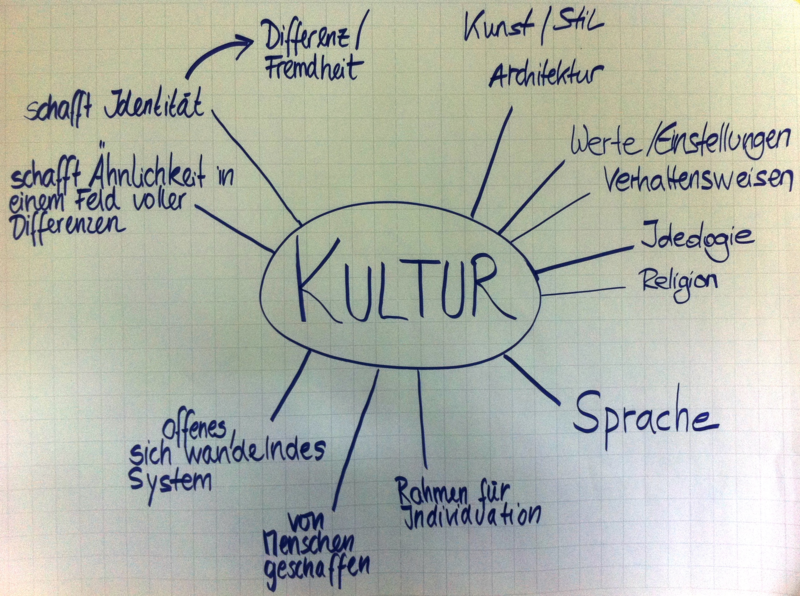 Differenz/
Fremdheit
Kunst/Stil
Architektur
schafft Identität
Werte/Einstellungen
Verhaltensweisen
schafft Ähnlichkeit in
einem Feld voller
Differenzen
Ideologie
Religion
KULTUR
Sprache
offenes,
sich wandelndes
System
Rahmen für
Individuation
von
Menschen
geschaffen